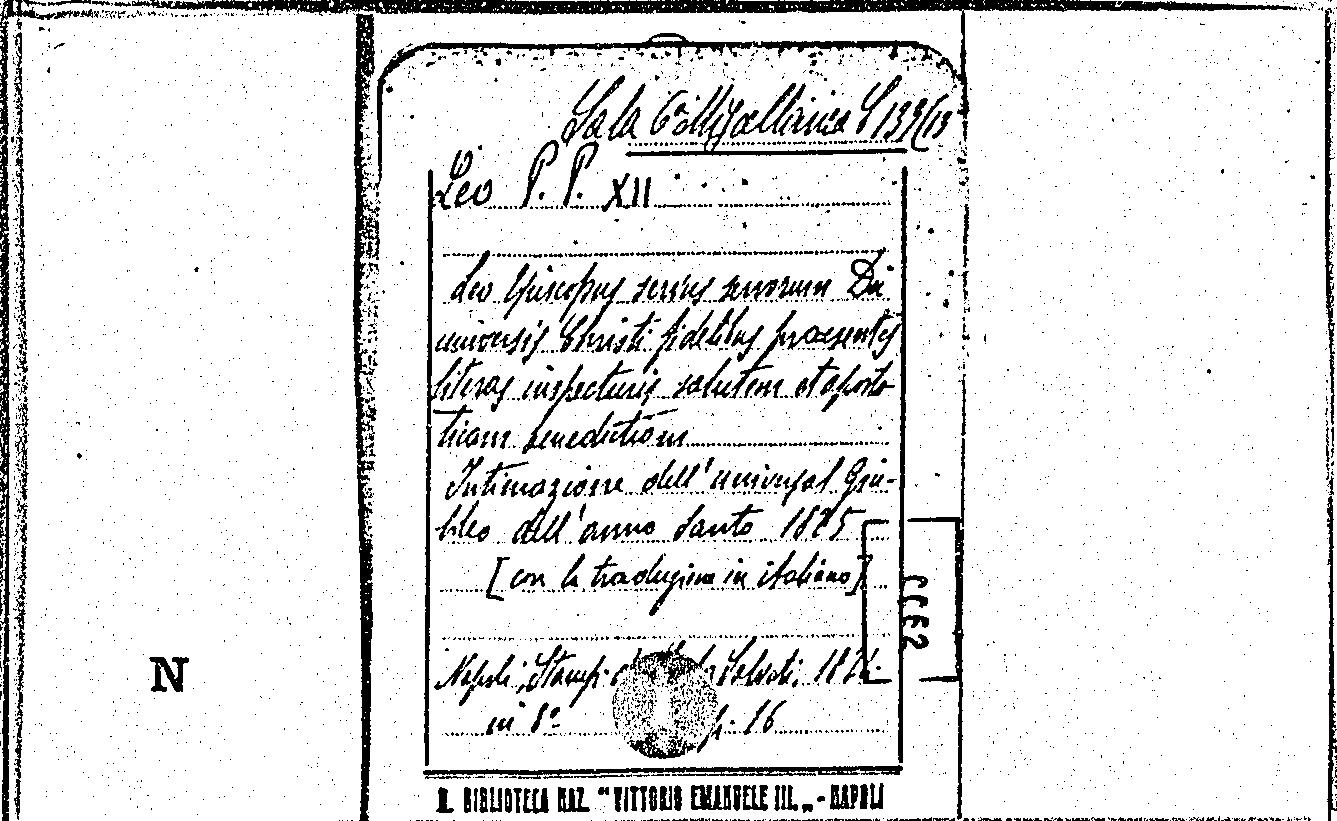 Sala 6ª Miscellanea C 139(13
Leo P. P. XII
Leo Episcopus servus servorum Dei
universis Christi fidelibus praesentes
literas inspecturis salutem et aposto
licam benedictionem
Intimazione dell'universal Giu-
bileo dell'anno Santo 1825
[con la traduzione in italiano]
Napoli, Stamp. Saloti, 1824.
in 8º p. 16
R. BIBLIOTECA NAZ. "VITTORIO EMANUELE III„ - NAPOLI
N